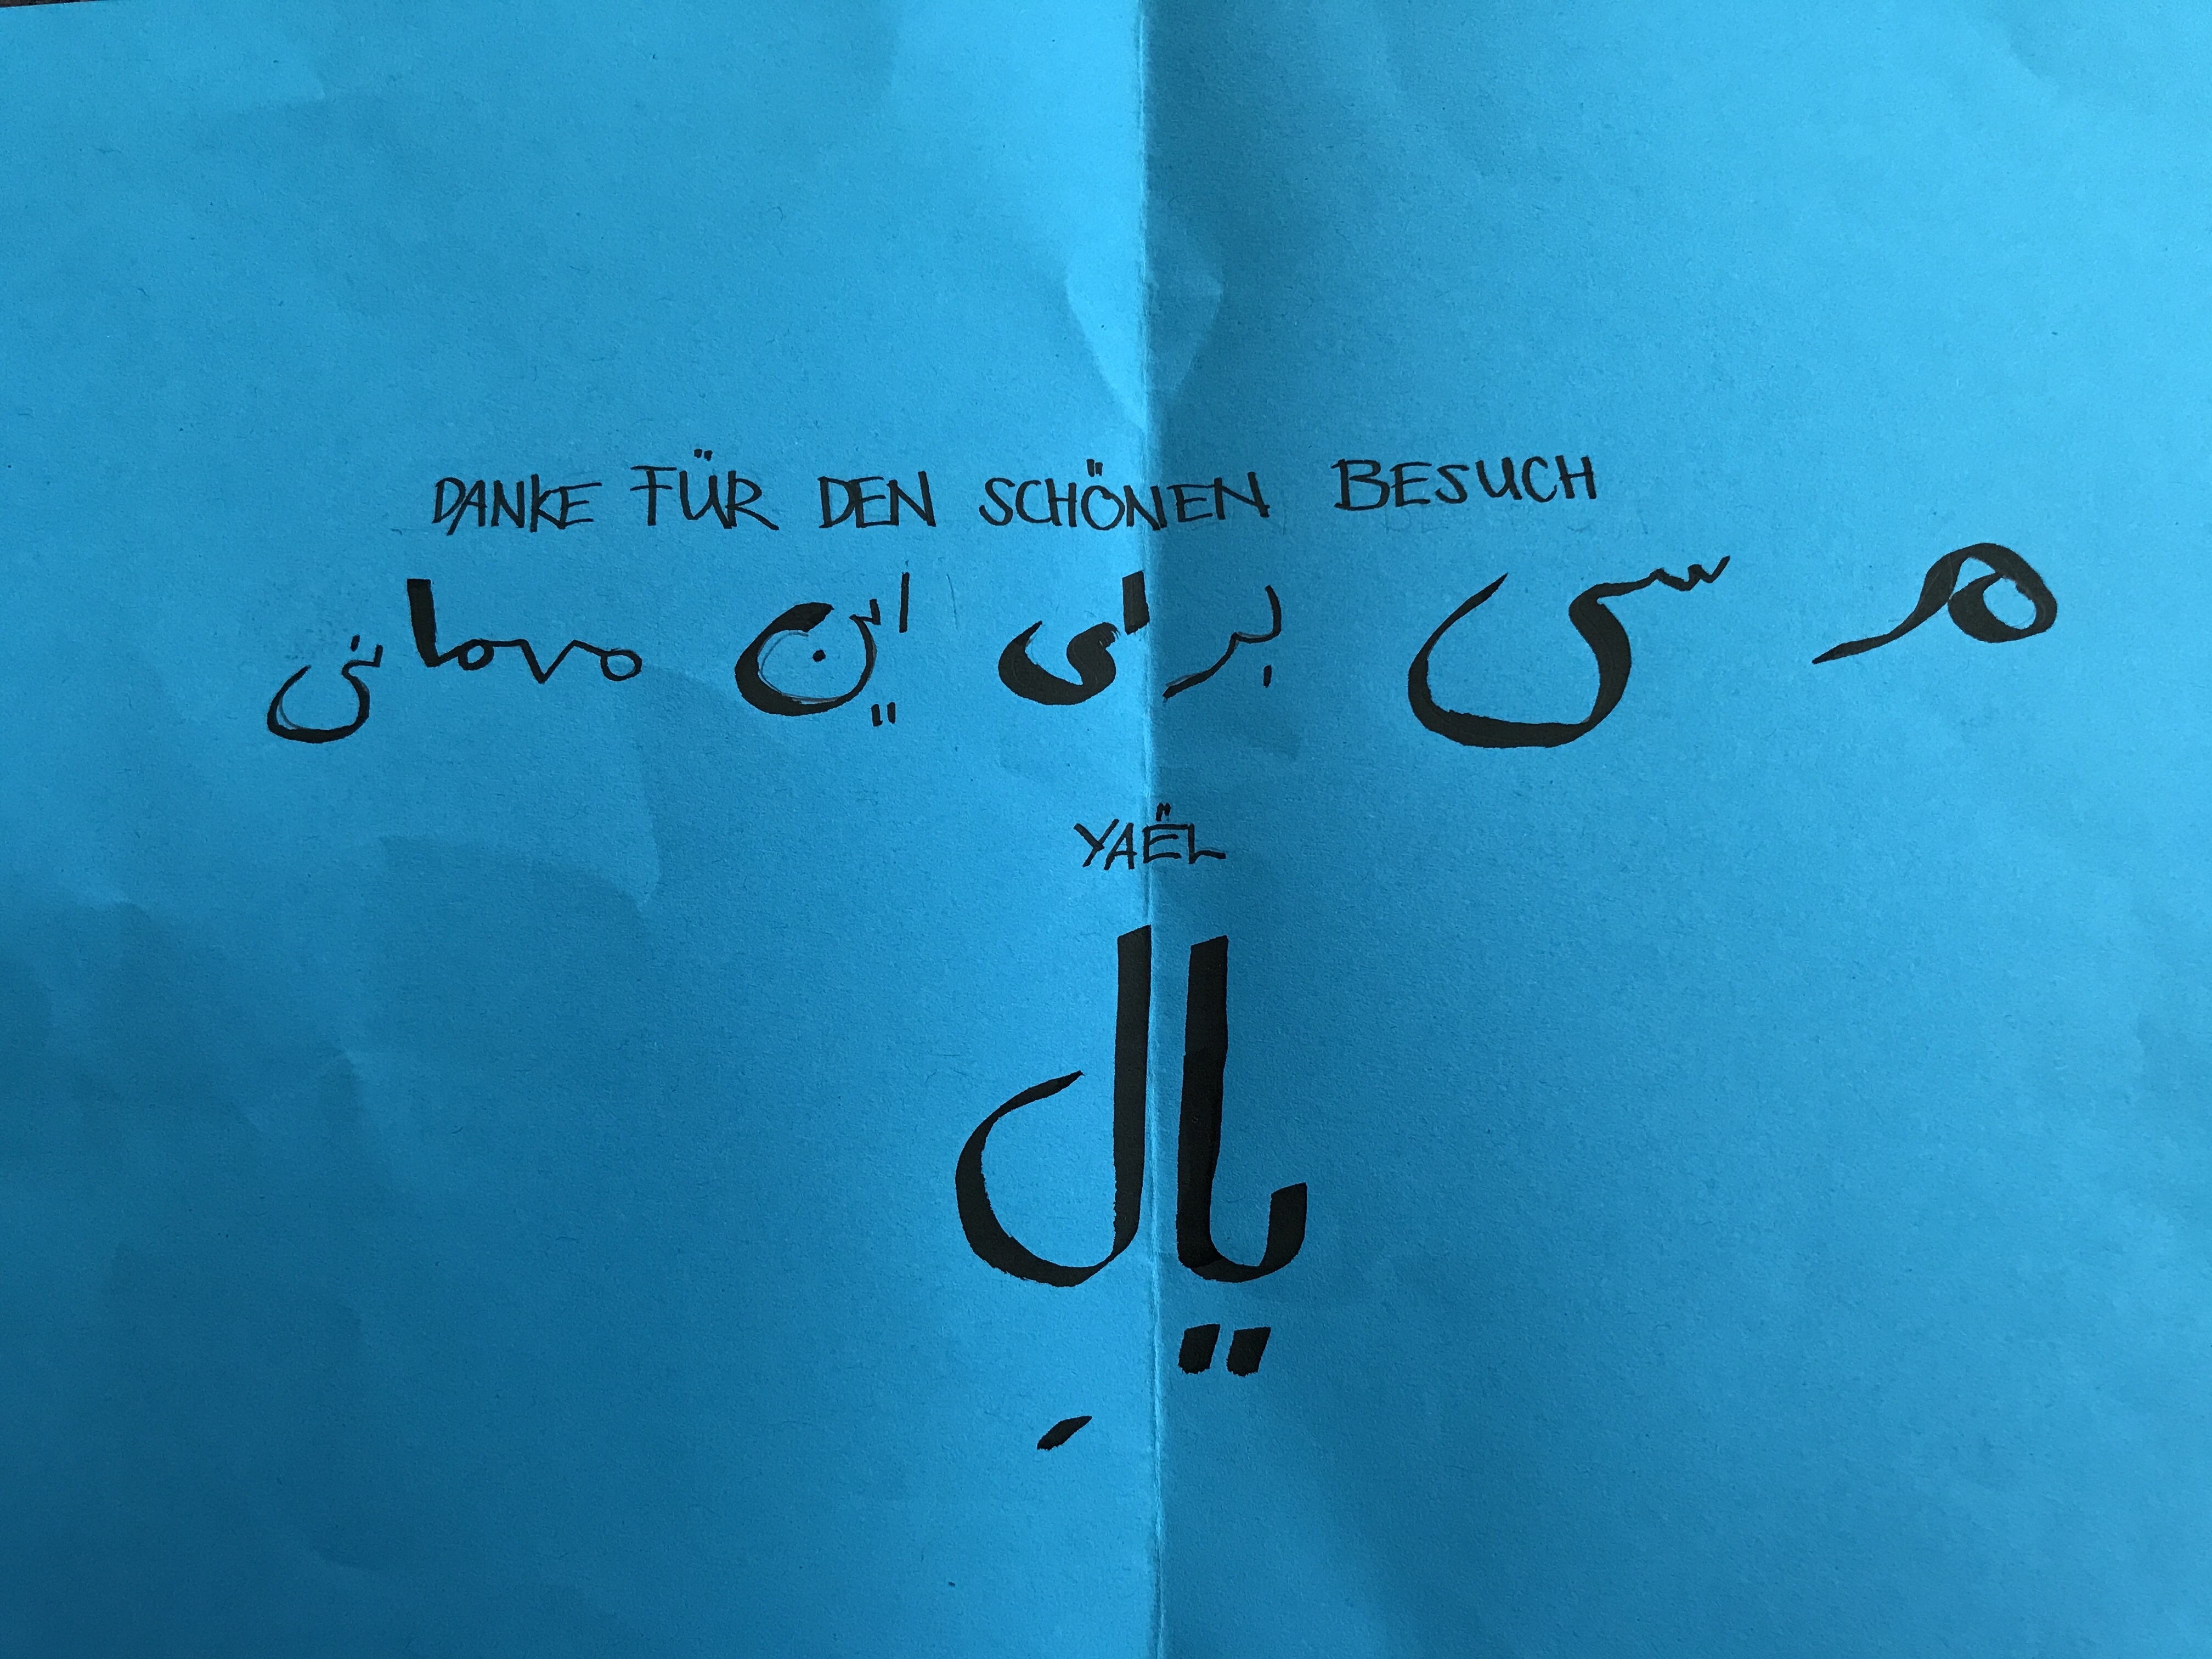 DANKE FÜR DEN SCHÖNEN BESUCH
مرسی برای این مهمانی
YAËL
یالِ